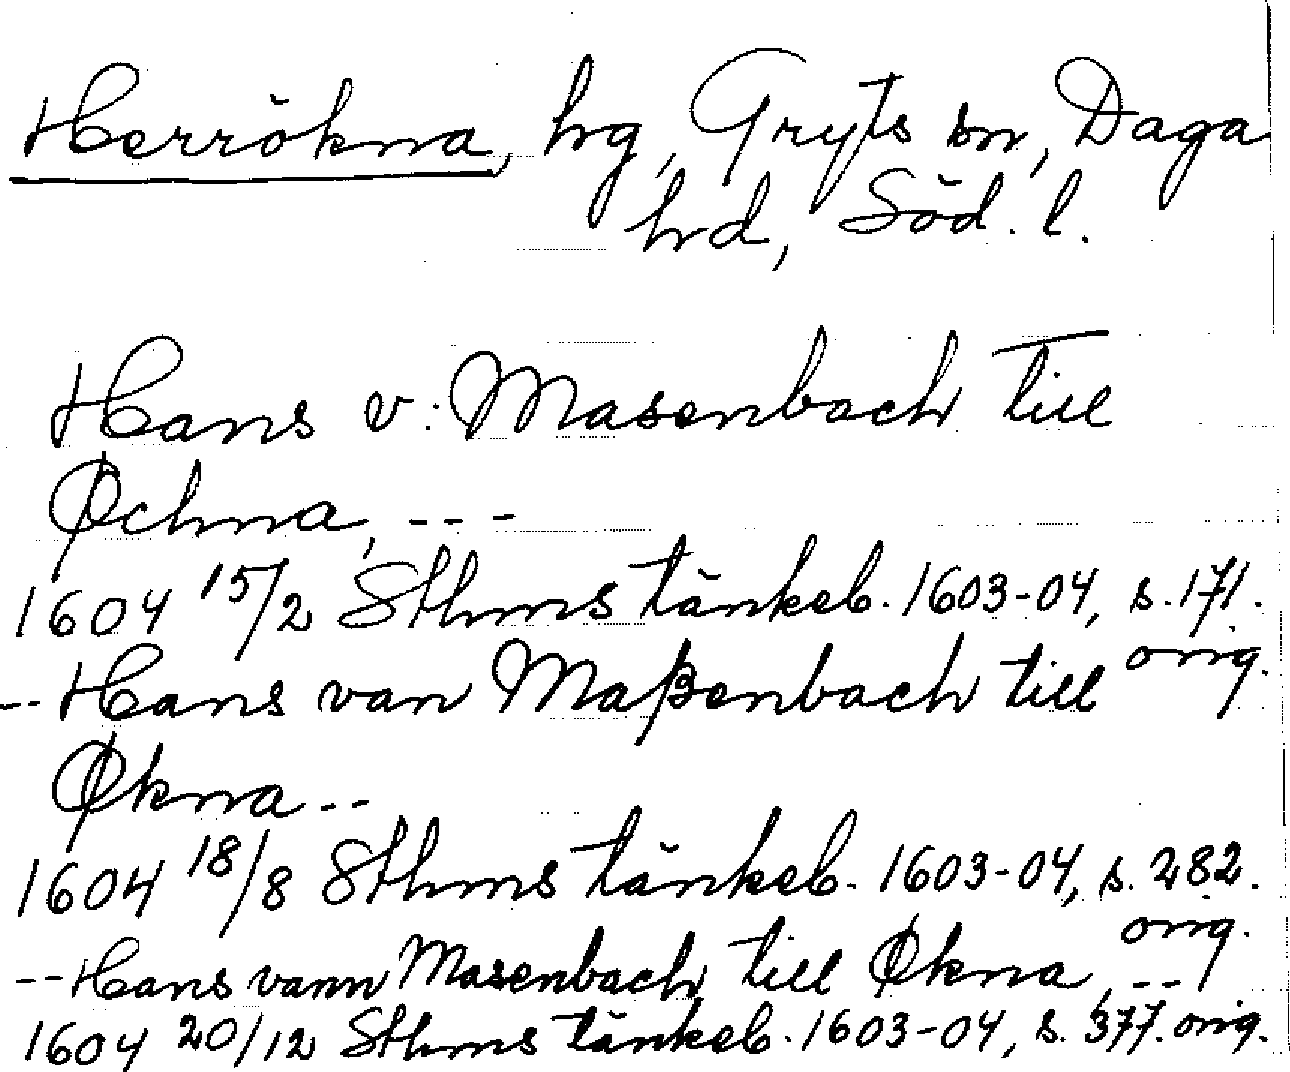 Herrökna, hg, Gryts sn, Daga
hrd, Söd. l.
Hans v: Masenbach till
Øchna, ---
1604 15/2 Sthms tänkeb. 1603-04, s. 171.
orig.
-- Hans van Maßenbach till
Økna --
1604 18/8 Sthms tänkeb. 1603-04, s. 282.
orig.
-- Hans vann Masenbach till Økna, --
1604 20/12 Sthms tänkeb. 1603-04, s. 377. orig.